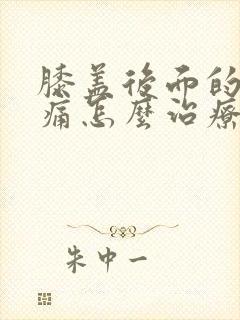 膝盖後面的
痛怎麼治療
朱中一